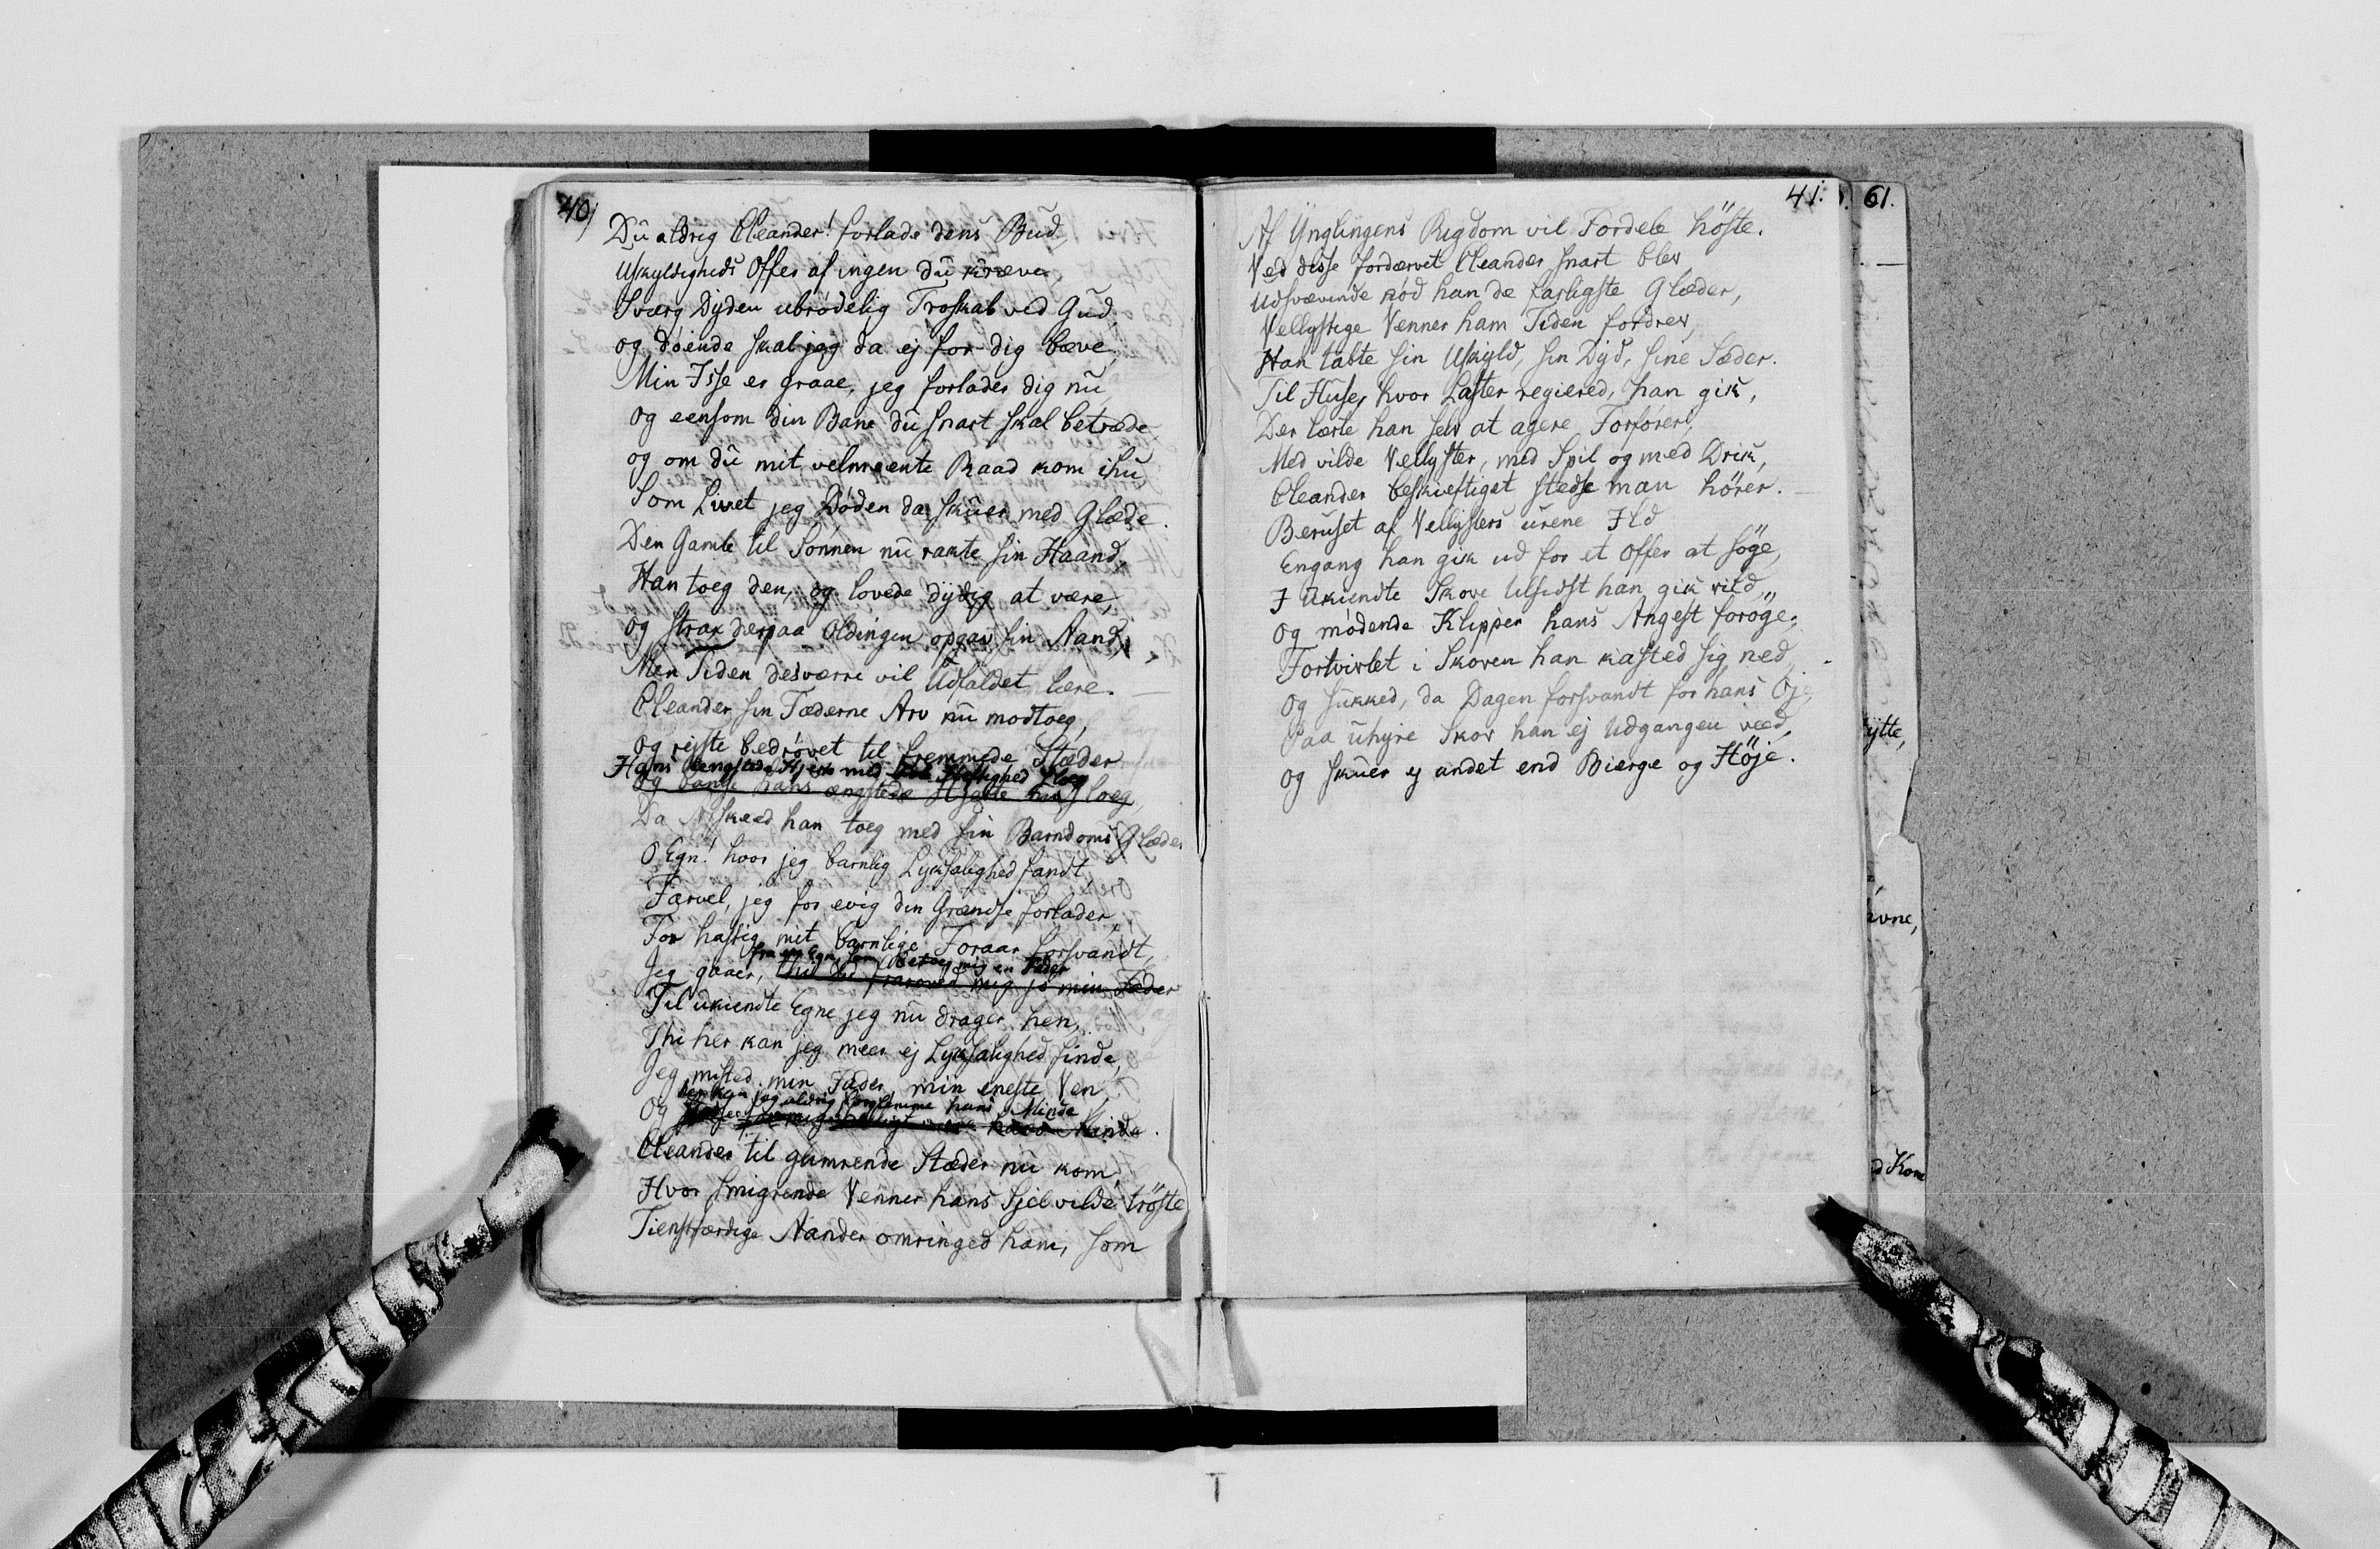 40)
Du aldrig Cleander! forlade dens Bud
Uskyldigheds Offer af ingen du kræve,
Sværg Dyden ubrødelig Troskab ved Gud,
og døende skal jeg da ej for dig bæve.
Min Isse er graae, jeg forlader dig nu,
og eensom din Bane du snart skal betræde
og om du mit velmeente Raad kom ihu
Som Livet jeg Døden da skuer med Glæde.
Den Gamle til Sønnen nu rakte sin Haand,
Han toeg den, og lovede dydig at være,
og strax derpaa Oldingen opgav sin Aand,
Men Tiden desværre vil Udfaldet lære. —
Cleander sin Fæderne Arv nu modtoeg,
og rejste bedrøvet til fremmede Stæder
Hans ængstede Hjerte med Heftighed sloeg
og bange hans ængstede Hjerte sloeg
Da Afskeed han toeg med sin Barndoms Glæder
O Egn! hvor jeg barnlig Lyksalighed fandt
Farvel, jeg for evig din Grændse forlader,
For hastig mit barnlige Foraar forsvandt,
fra en Egn, som betog mig en Fader
Jeg gaaer, thi du frarøved mig jo min Fader
Til ukiendte Egne jeg nu drager hen,
Thi her kan jeg meer ej Lyksalighed finde,
Jeg misted min Fader, min eneste Ven,
der kan jeg aldrig forglemme hans Minde
og for mig helligt hans Minde.
Cleander til gumrende Stæder nu kom,
Hvor smigrende Venner hans Sjel vilde trøste
Tienstfærdige Aander omringed ham, som
41.
Af Ynglingens Rigdom vil Fordele høste.
Ved disse fordærvet Cleander snart blev
Udsvævende nød han de farligste Glæder,
Vellystige Venner ham Tiden fordrev,
Han tabte sin Uskyld, sin Dyd, sine Sæder.
Til Huse, hvor Laster regiered, han gik,
Der lærte han selv at agere Forfører,
Med vilde Vellyster, med Spil og med Drik,
Cleander beskieftiget stedse man hører. —
Beruset af Vellysters urene Ild
Engang han gik ud for et Offer at søge,
I ukiendte Skove tilsidst han gik vild,
og mødende Klipper hans Angest forøge.
Fortvivlet i Skoven han kasted sig ned,
og sukked, da Dagen forsvandt for hans Øje,
Paa uhyre Skov han ej Udgangen veed,
og skuer ej andet end Bierge og Høje.
61.
ytte,
vne,
d Kom